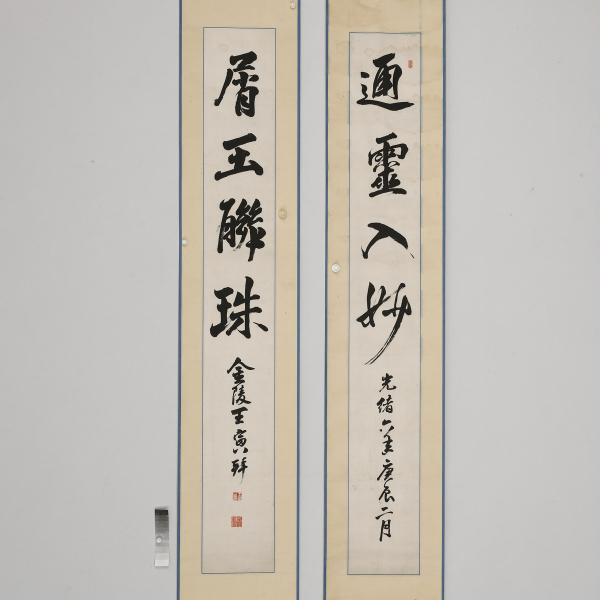 通靈入妙
光緒六年庚辰二月
屑玉聯珠
金陵王寅